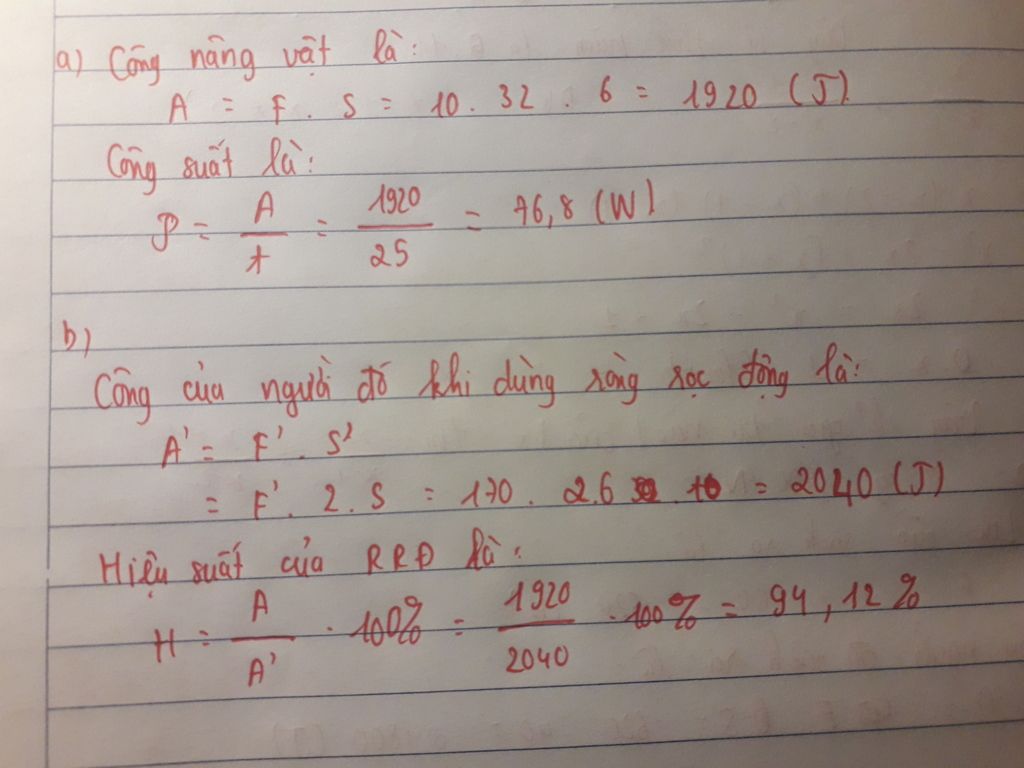 a) Công nâng vật là:
A = F . S = 10 . 32 . 6 = 1920 (J)
Công suất là:
P = A/t = 1920/25 = 76,8 (W)
b)
Công của người đó khi dùng ròng rọc động là:
A' = F' . S'
= F' . 2 . S = 170 . 2.6 = 2040 (J)
Hiệu suất của RRĐ là:
H = A/A' . 100% = 1920/2040 . 100% = 94,12%